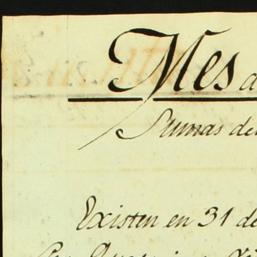 Mes d
Sumas de
Existen en 31 de